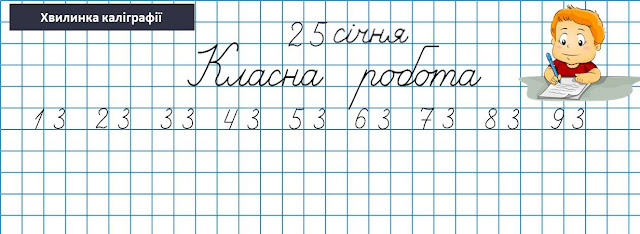 Хвилинка каліграфії
25 січня
Класна робота
13 23 33 43 53 63 73 83 93